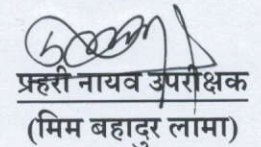 प्रहरी नायव उपरीक्षक
(मिम बहादुर लामा)